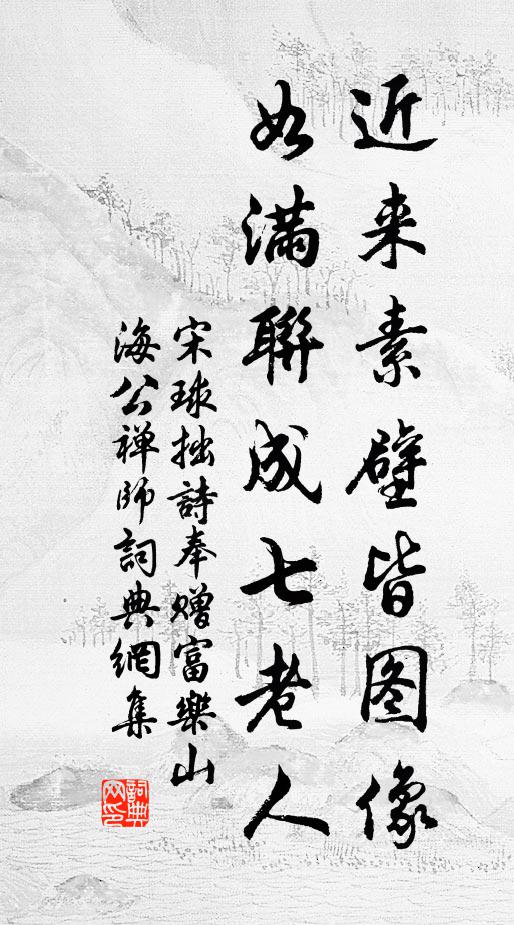 近来素壁皆图像
如满聯成七老人
宋球拙詩奉赠富樂山
海公禅师詞典網集
詞典网印